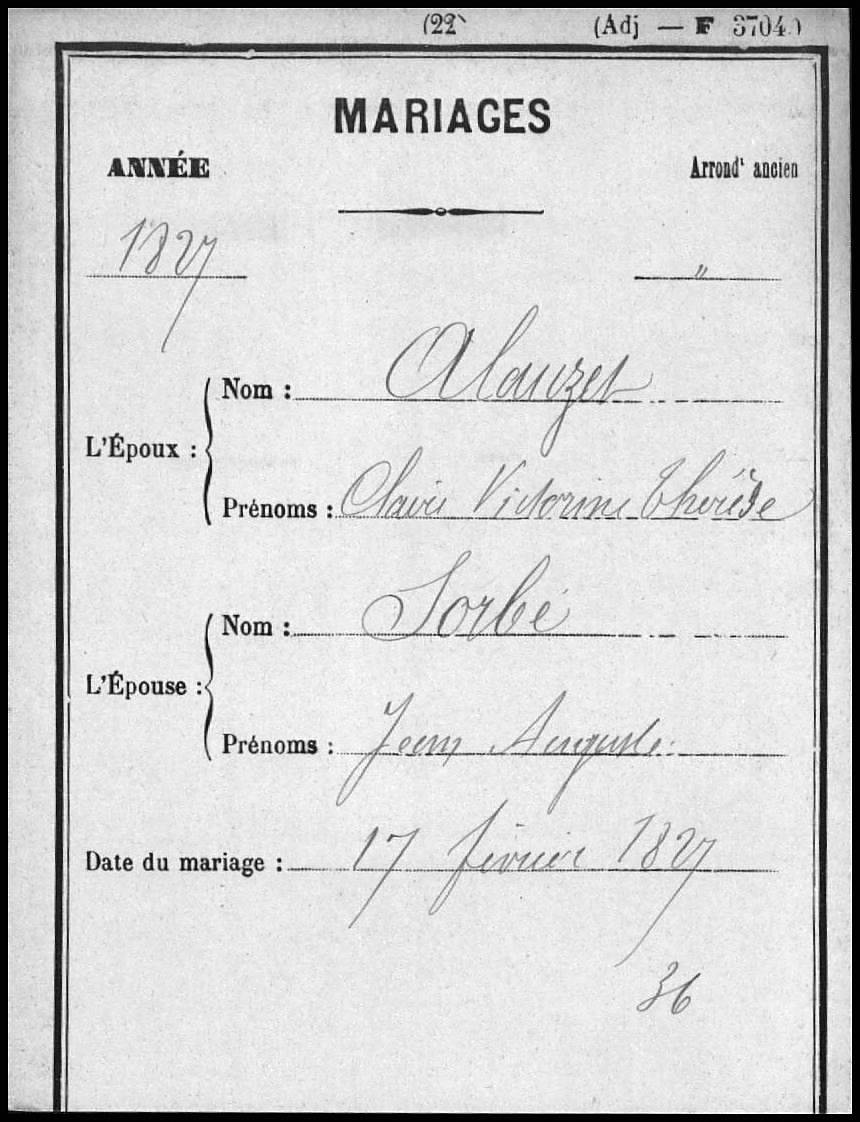 (22)
(Adj — F 3704.)
MARIAGES
ANNÉE Arrondt ancien
1827 "
L'Époux :
Nom : Alauzet
Prénoms : Claire Victorine Thérèse
L'Épouse :
Nom : Sorbé
Prénoms : Jean Auguste
Date du mariage : 17 février 1827
36